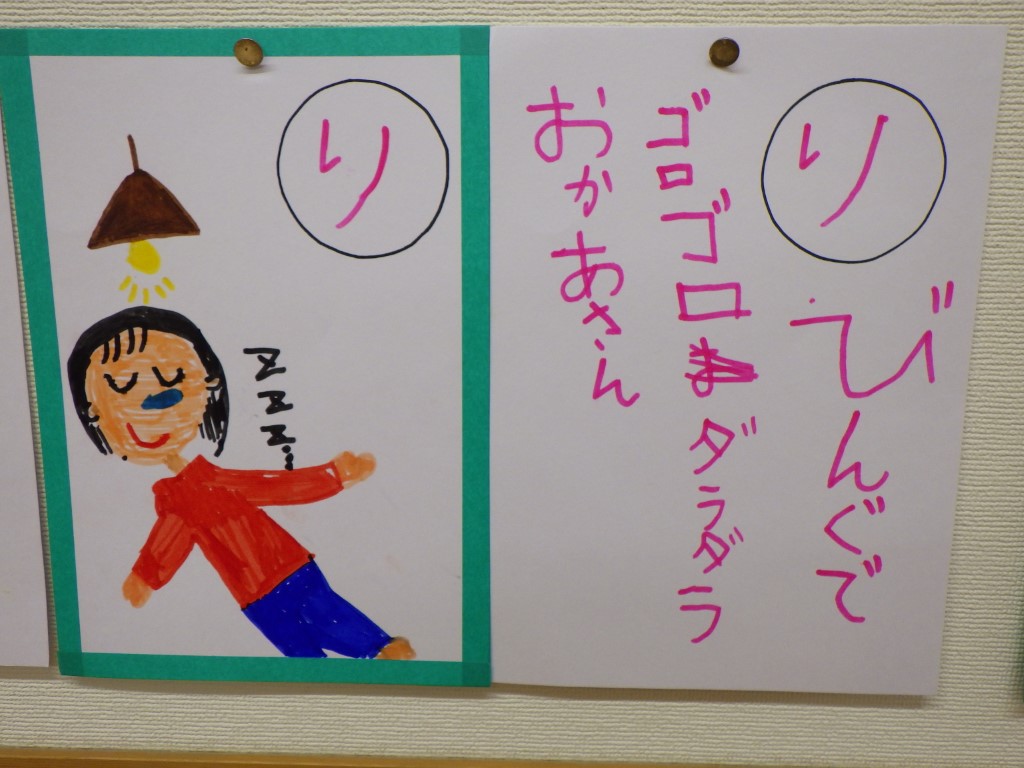 り
zzz...
りびんぐで
ゴロゴロダラダラ
おかあさん